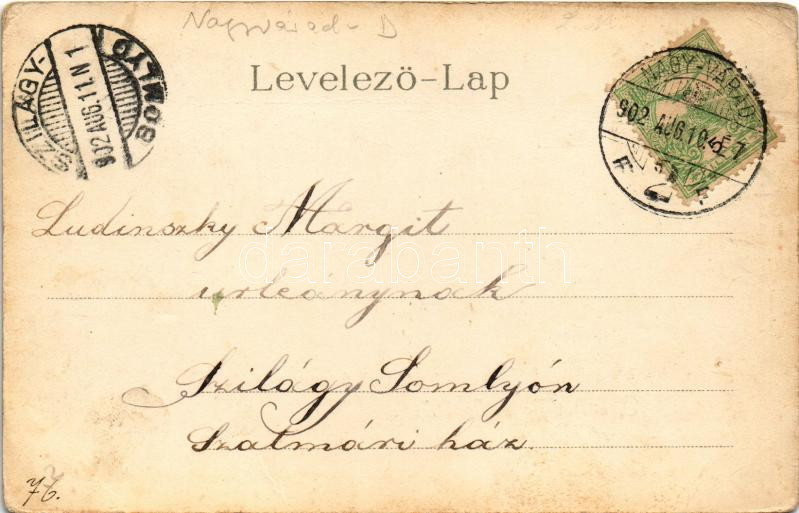 Nagyvárad - D
Levelezö-Lap
SZILÁGY-SOMLYÓ
902 AUG. 11. N 1
NAGY-VÁRAD
902 AUG 10. É 7
Ludinszky Margit
urleánynak
Szilágy Somlyón
Szatmári ház.
76.
darabanth